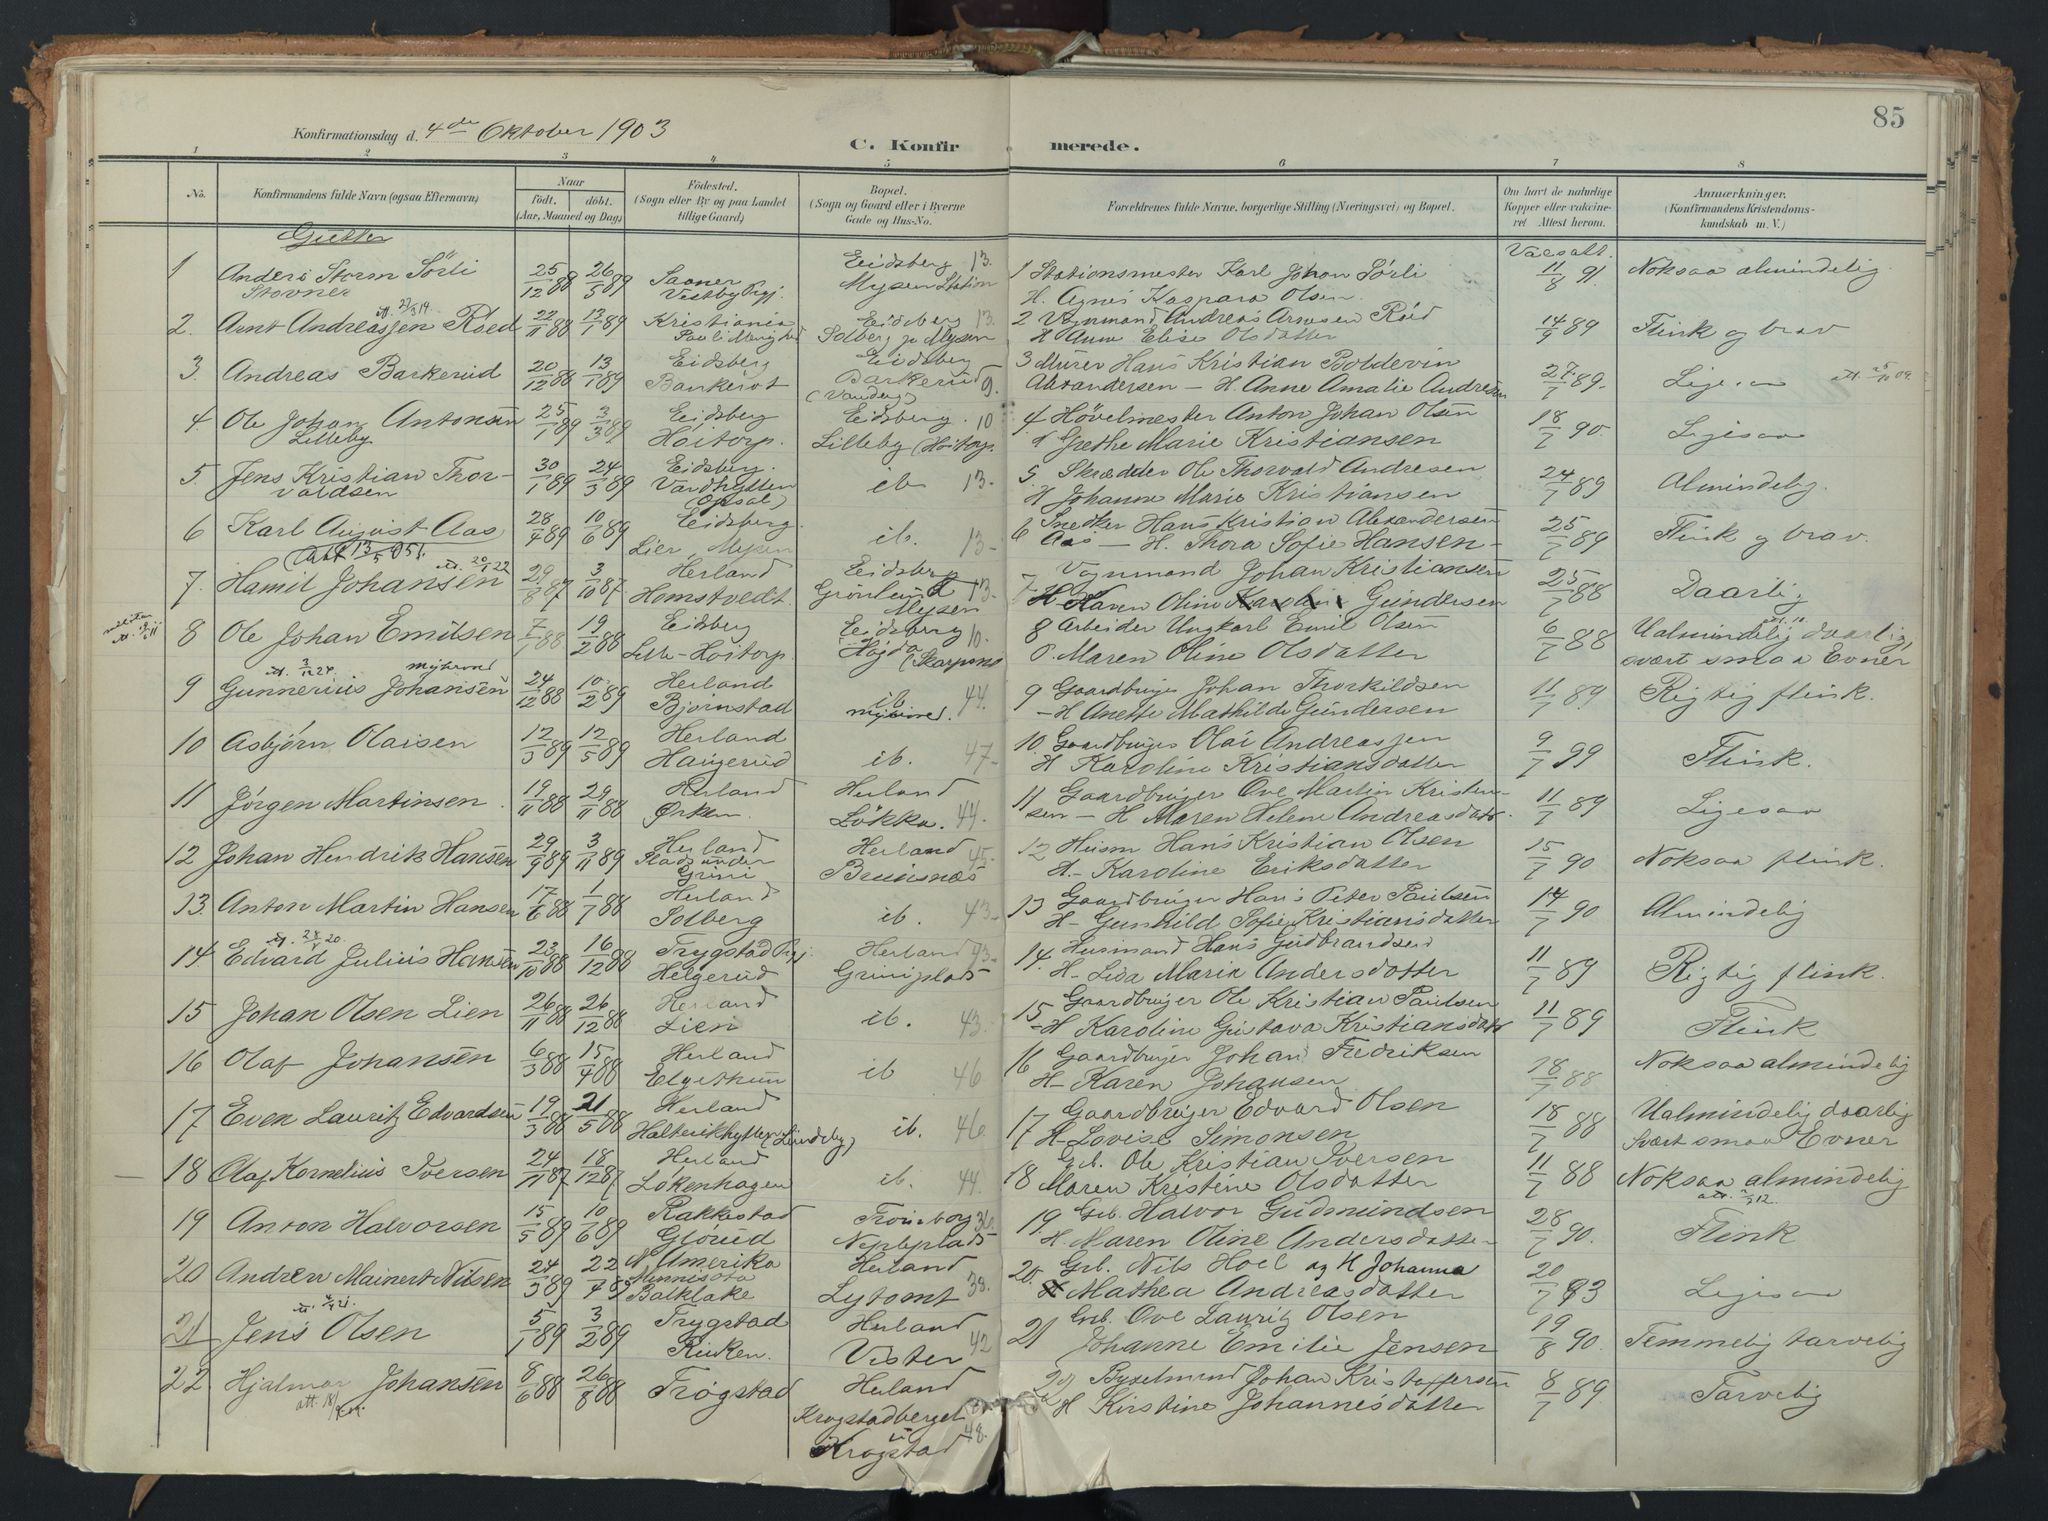 85
Konfirmationsdag d. 4de Oktober 1903
C. Konfirmerede.
1 2 3 4 5 6 7 8
No. Konfirmandens fulde Navn (ogsaa Efternavn) Naar født. døbt. (Aar, Maaned og Dag) Fødested. (Sogn eller By og paa Landet tillige Gaard) Bopæl. (Sogn og Gaard eller i Byerne Gade og Hus-No. Forældrenes fulde Navne, borgerlige Stilling (Næringsvei) og Bopæl. Om havt de naturlige Kopper eller vaccineret Attest herom. Anmærkninger. (Konfirmandens Kristendomskundskab m. V.)
Gutter
1 Anders Storm Sörli 25/12 88 26/5 89 Saaner Eidsberg 13. 1 Stationsmester Karl Johan Sørli 11/8 91 Noksaa almindelig
Stovner Vestby Prgj. Mysen Station H. Agnes Kaspara Olsen
2. Arnt Andreassen Röed 22/11 88 13/1 89 Kristiania Eidsberg 13. 2 Vognmand Andreas Arnesen Röd 14/9 89 Flink og brav
Solberg pr Mysen H Anne Elise Olsdatter
3. Andreas Barkerud 20/12 88 13/1 89 Eidsberg Eidsberg 3 Murer Hans Kristian Boldevin 27/7 89. Ligesaa
Barkerud 9. Alexandersen - H. Anne Amalie Andresen
4. Ole Johan Antonsen 25/1 89 3/3 89 Eidsberg Eidsberg. 10 4 Hövelmester Anton Johan Olsen 18/7 90. Ligesaa
Lilleby Höitorp. Lilleby (Höitorp. Grethe Marie Kristiansen
5. Jens Kristian Thor- 30/1 89 24/3 89 Eidsberg. ib 13. 5. Skrædder Ole Thorvald Andresen 24/7 89 Almindelig.
valdsen Vardhytten (Opsal) H Johanne Marie Kristiansen
6 Karl August Aas 28/4 89 10/6 89 Eidsberg. ib. 13- 6 Snedker Hans Kristian Alexandersen 25/7 89 Flink og brav.
Lier, Mysen Aas - H. Thora Sofie Hansen -
7. Hamil Johansen 29/8 87 3/10 87. Herland Eidsberg 7. Vognmand Johan Kristiansen 25/7 88 Daarlig
Hemstvedt. Grönlund 13- Mysen H Karen Oline Karoline Gundersen
8 Ole Johan Emilsen 7/1 88 19/2 88 Eidsberg Eidsberg 10. 8 Arbeider Ungkarl Emil Olsen 6/7 88 Ualmindelig daarlig,
Lille-Höitorp. Højda (Skarpsno Maren Oline Olsdatter svært smaa Evner
9 Gunnerius Johansen 24/12 88 10/2 89 Herland ib 44. 9 Gaardbruger Johan Thorkildsen 11/7 89 Rigtig flink.
Bjørnstad - H Anette Mathilde Gundersen
10 Asbjörn Olaisen 12/3 89 12/5 89 Herland ib. 47- 10. Gaardbruger Olai Andreassen 9/7 99 Flink.
Haugerud H Karoline Kristiansdatter
11 Jörgen Martinsen 19/11 88 29/11 88 Herland Herland 11. Gaardbruger Ove Martin Kristen- 11/7 89 Ligesaa
Løkka. 44- sen - H Maren Helene Andreasdatr.
12 Johan Hendrik Hansen 29/9 89 3/11 89 Herland Herland 45. 12 Husm Hans Kristian Olsen 15/7 90 Noksaa flink.
Grini Bruusnæs H.- Karoline Eriksdatter
13. Anton Martin Hansen 17/6 88 1/7 88 Herland ib. 43- 13 Gaardbruger Hans Peter Paulsen 14/7 90 Almindelig
Solberg H- Gunhild Sofie Kristiansdatter
14. Edvard Julius Hansen 23/10 88 16/12 88 Trygstad Prgj. Herland 43- 14. Husmand Hans Gudbrandsen 11/7 89 Rigtig flink.
Helgerud Griniplads H- Lisa Maria Andersdatter
15 Johan Olsen Lien 26/11 88 26/12 88 Herland ib. 43. 15 Gaardbruger Ole Kristian Paulsen 11/7 89 Flink
Lien - H Karoline Gustava Kristiansdatr
16 Olaf Johansen 6/3 88 15/4 88 Herland ib 46 16 Gaardbruger Johan Fredriksen 18/7 88 Noksaa almindelig
Elgethun H- Karen Johansen
17 Even Lauritz Edvardsen 19/3 88 21/5 88 Herland ib. 46. 17 Gaardbruger Edvard Olsen 18/7 88 Ualmindelig daarlig
Halterikhytten (Lundeby) H- Lovise Simonsen Svært smaa Evner
18 Olaf Kornelius Iversen 24/11 87 18/12 87 Herland ib. 44. 18 Grb. Ole Kristian Iversen 11/7 88 Noksaa almindelig
Løkenhagen Maren Kristine Olsdatter
19 Anton Halvorsen 15/5 89 10/6 89 Rakkestad 36. 19 Grb. Halvor Gudmundsen 28/7 90. Flink
H. Maren Oline Andersdatter
20 Andrew Mainert Nilsen 24/3 89 22/4 89 N Amerika Herland 20. Grb. Nils Hoel og H Johanna 20/7 93 Ligesaa
Minnisota Lytomt 38. Mathea Andreasdatter
21 Jens Olsen 5/1 89 3/2 89 Trygstad Herland 42 21 Grb. Ove Lauritz Olsen 19/8 90. Temmelig tarvelig
Ruken. Vister Johanne Emilie Jensen
22 Hjalmar Johansen 8/6 88 26/8 88 Trøgstad Herland 22 Bysselmand Johan Kristoffersen 8/7 89. Tarvelig
Krogstadberget H Kirstine Johannesdatter
Krogstad 48.